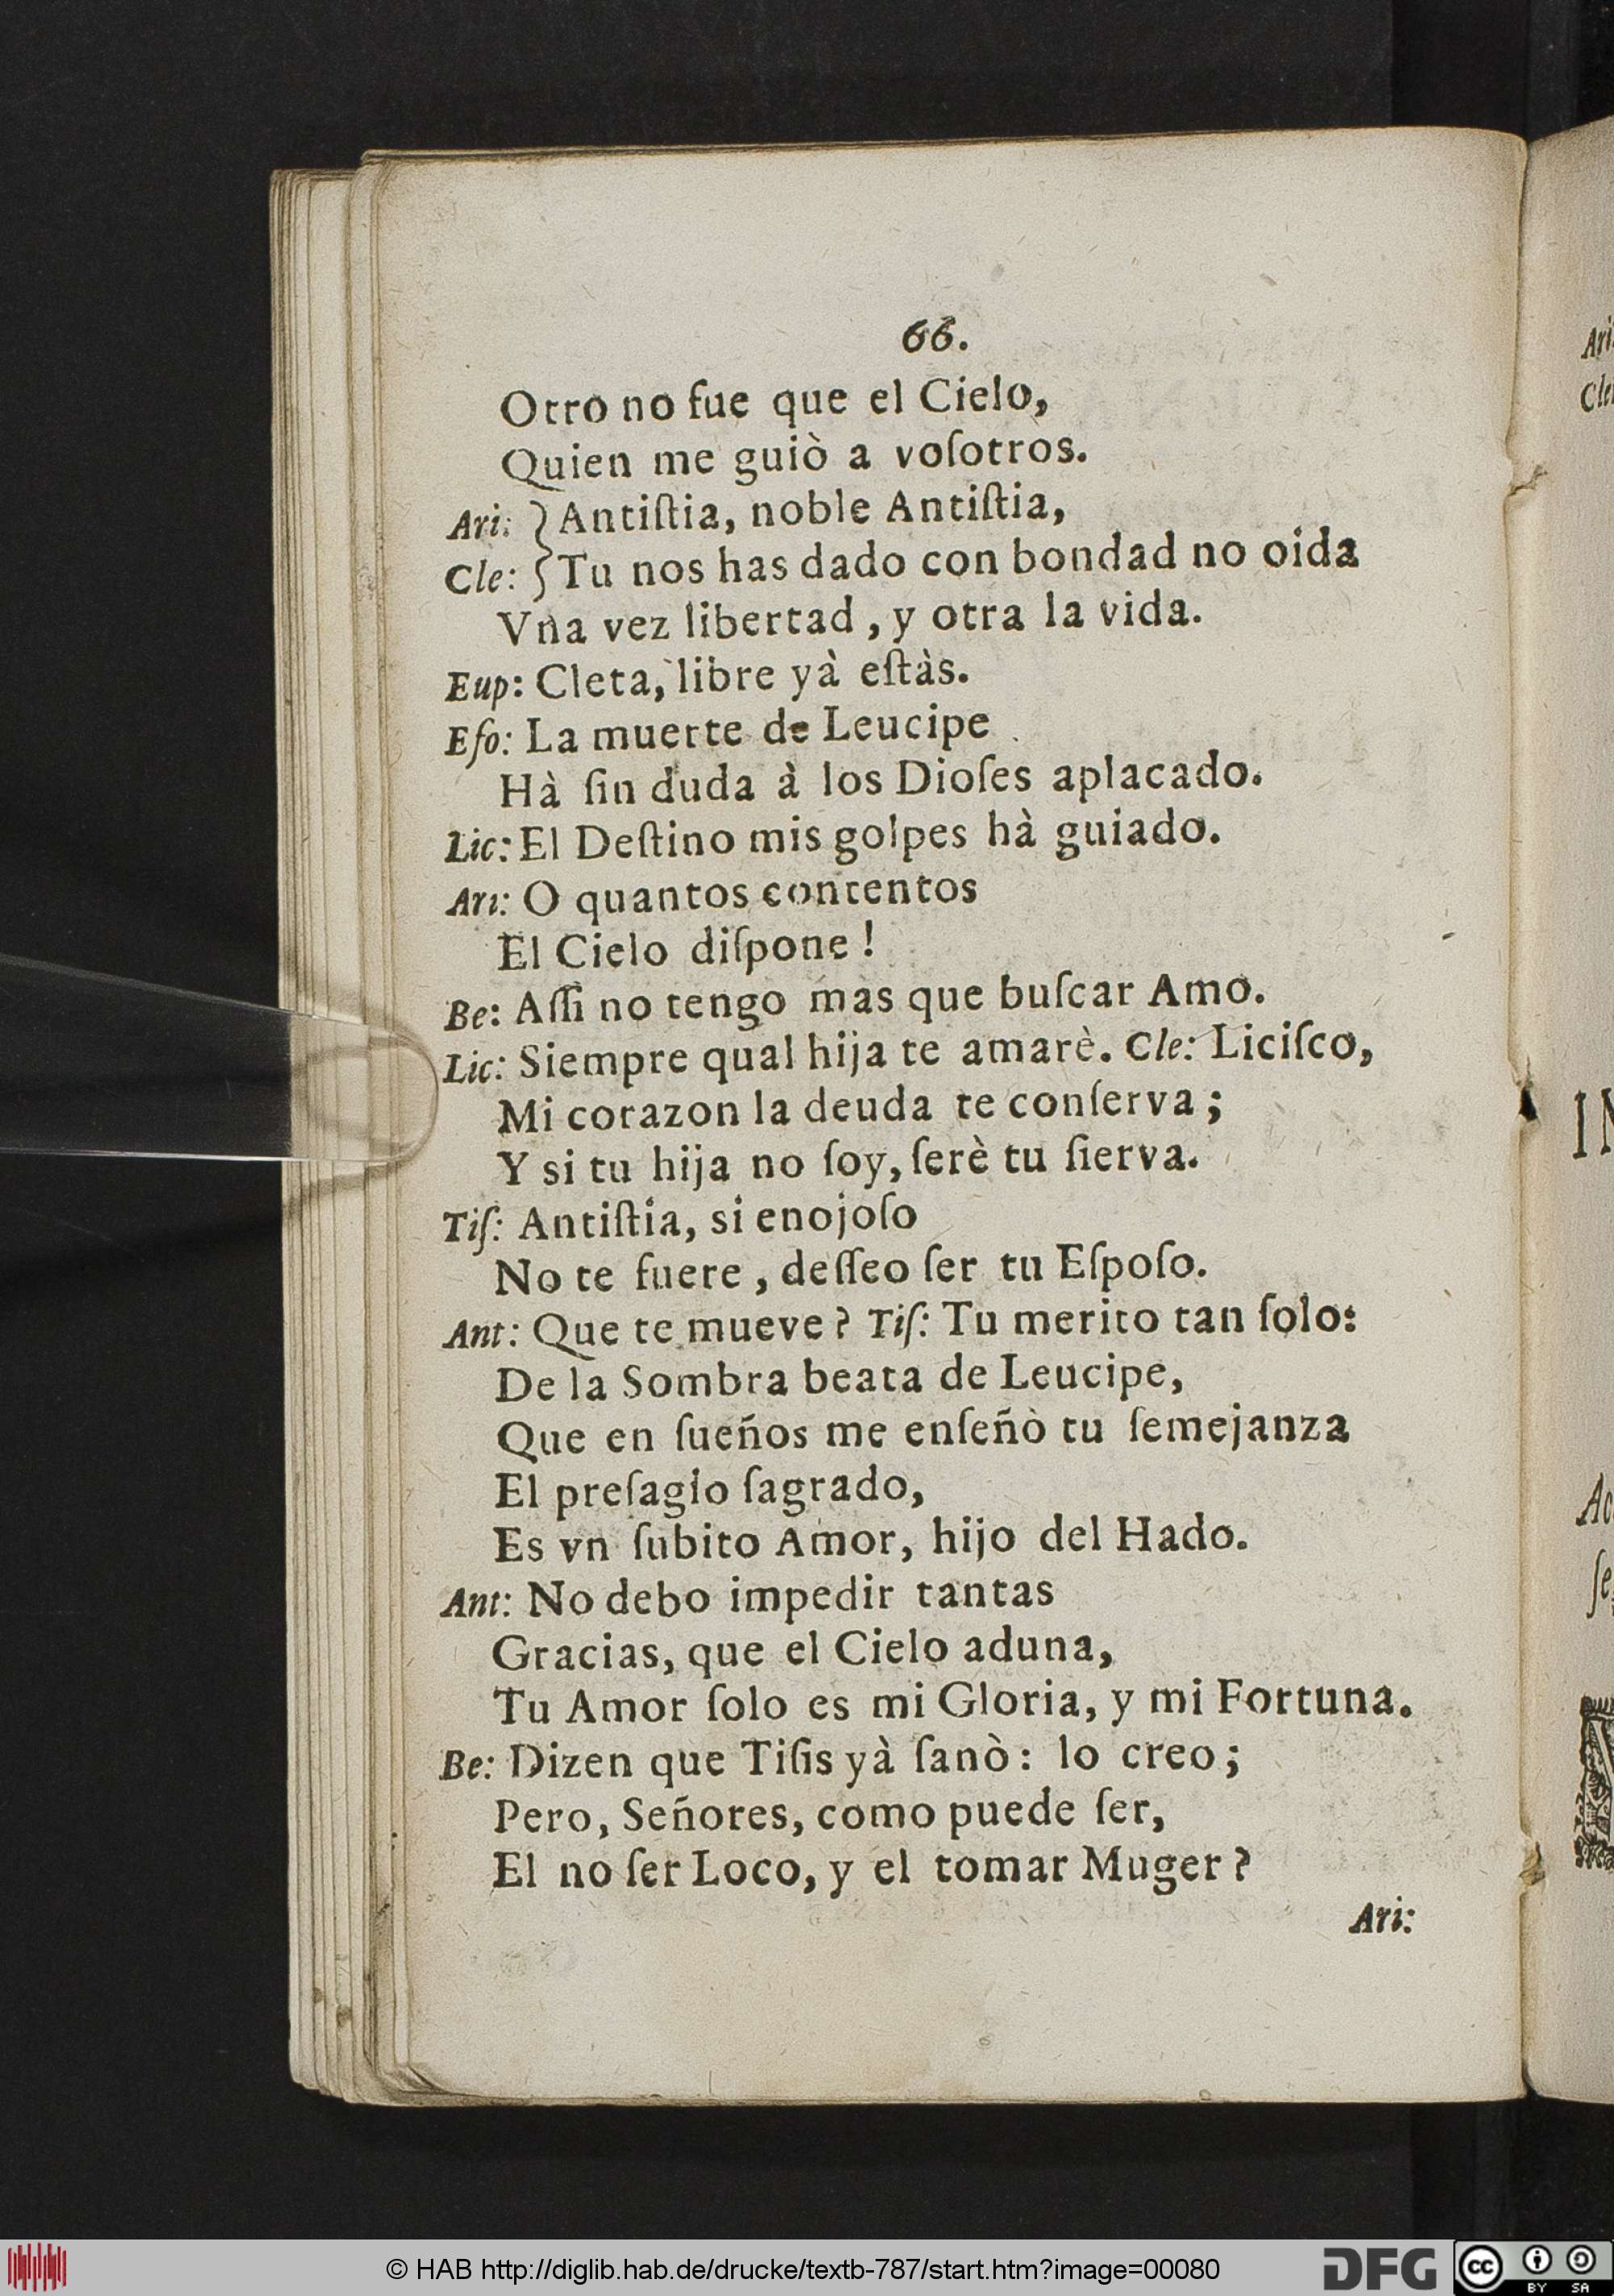 66.
Otro no fue que el Cielo,
Quien me guiò a voſotros.
Ari: } Antiſtia, noble Antiſtia,
Cle: } Tu nos has dado con bondad no oida
Vna vez libertad, y otra la vida.
Eup: Cleta, libre yà eſtàs.
Eſo: La muerte de Leucipe
Hà ſin duda à los Dioſes aplacado.
Lic: El Deſtino mis golpes hà guiado.
Ari: O quantos contentos
El Cielo diſpone!
Be: Aſſi no tengo mas que buſcar Amo.
Lic: Siempre qual hija te amarè. Cle: Liciſco,
Mi corazon la deuda te conſerva;
Y si tu hija no ſoy, ſerè tu ſierva.
Tiſ: Antiſtia, si enojoſo
No te fuere, deſſeo ſer tu Eſpoſo.
Ant: Que te mueve? Tiſ: Tu merito tan ſolo:
De la Sombra beata de Leucipe,
Que en ſueños me enſeñò tu ſemejanza
El preſagio ſagrado,
Es vn ſubito Amor, hijo del Hado.
Ant: No debo impedir tantas
Gracias, que el Cielo aduna,
Tu Amor ſolo es mi Gloria, y mi Fortuna.
Be: Dizen que Tiſis yà ſanò: lo creo;
Pero, Señores, como puede ſer,
El no ſer Loco, y el tomar Muger?
Ari:
Ari
Cle
IN
Ac
ſe
© HAB http://diglib.hab.de/drucke/textb-787/start.htm?image=00080
DFG
cc
BY SA